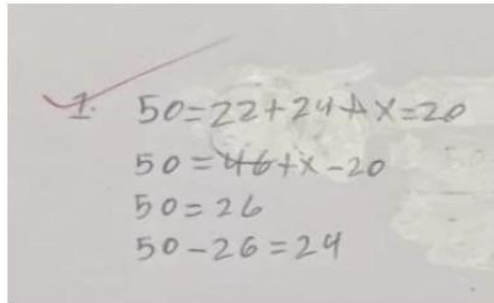 1. 50=22+24+x=20
50=46+x-20
50=26
50-26=24